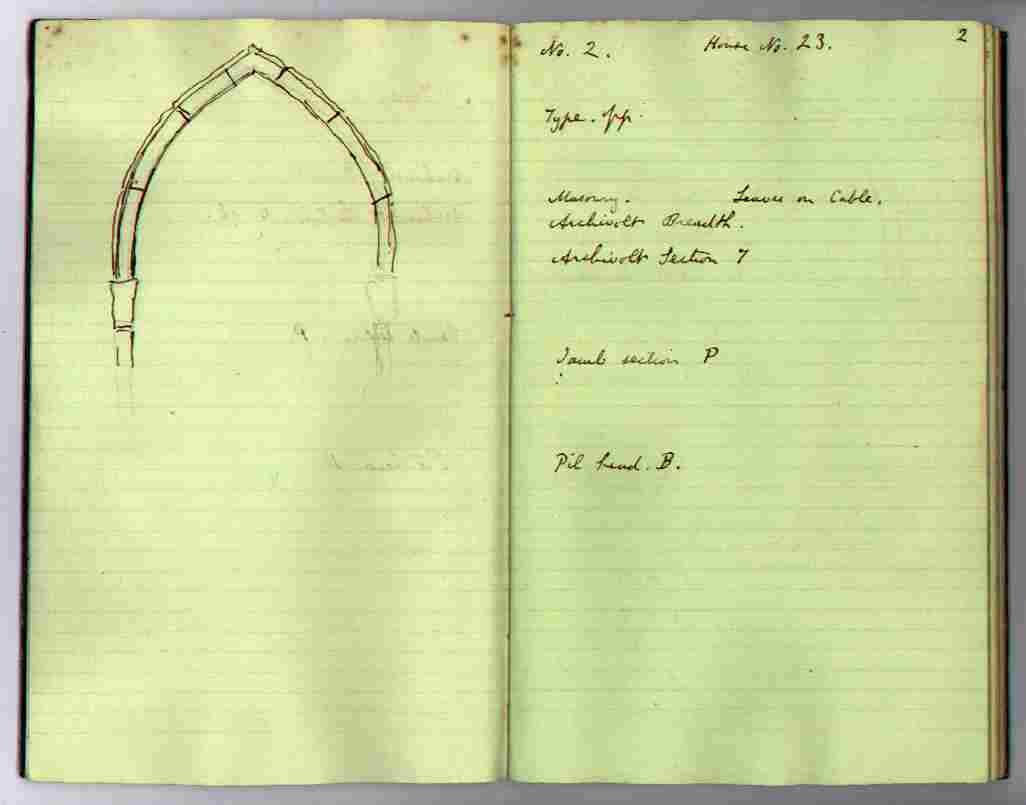 2
No. 2. House No. 23.
Type.
Masonry. Leaves on Cable.
Archivolt Breadth.
Archivolt Section 7
Jamb section P
Pil head. B.